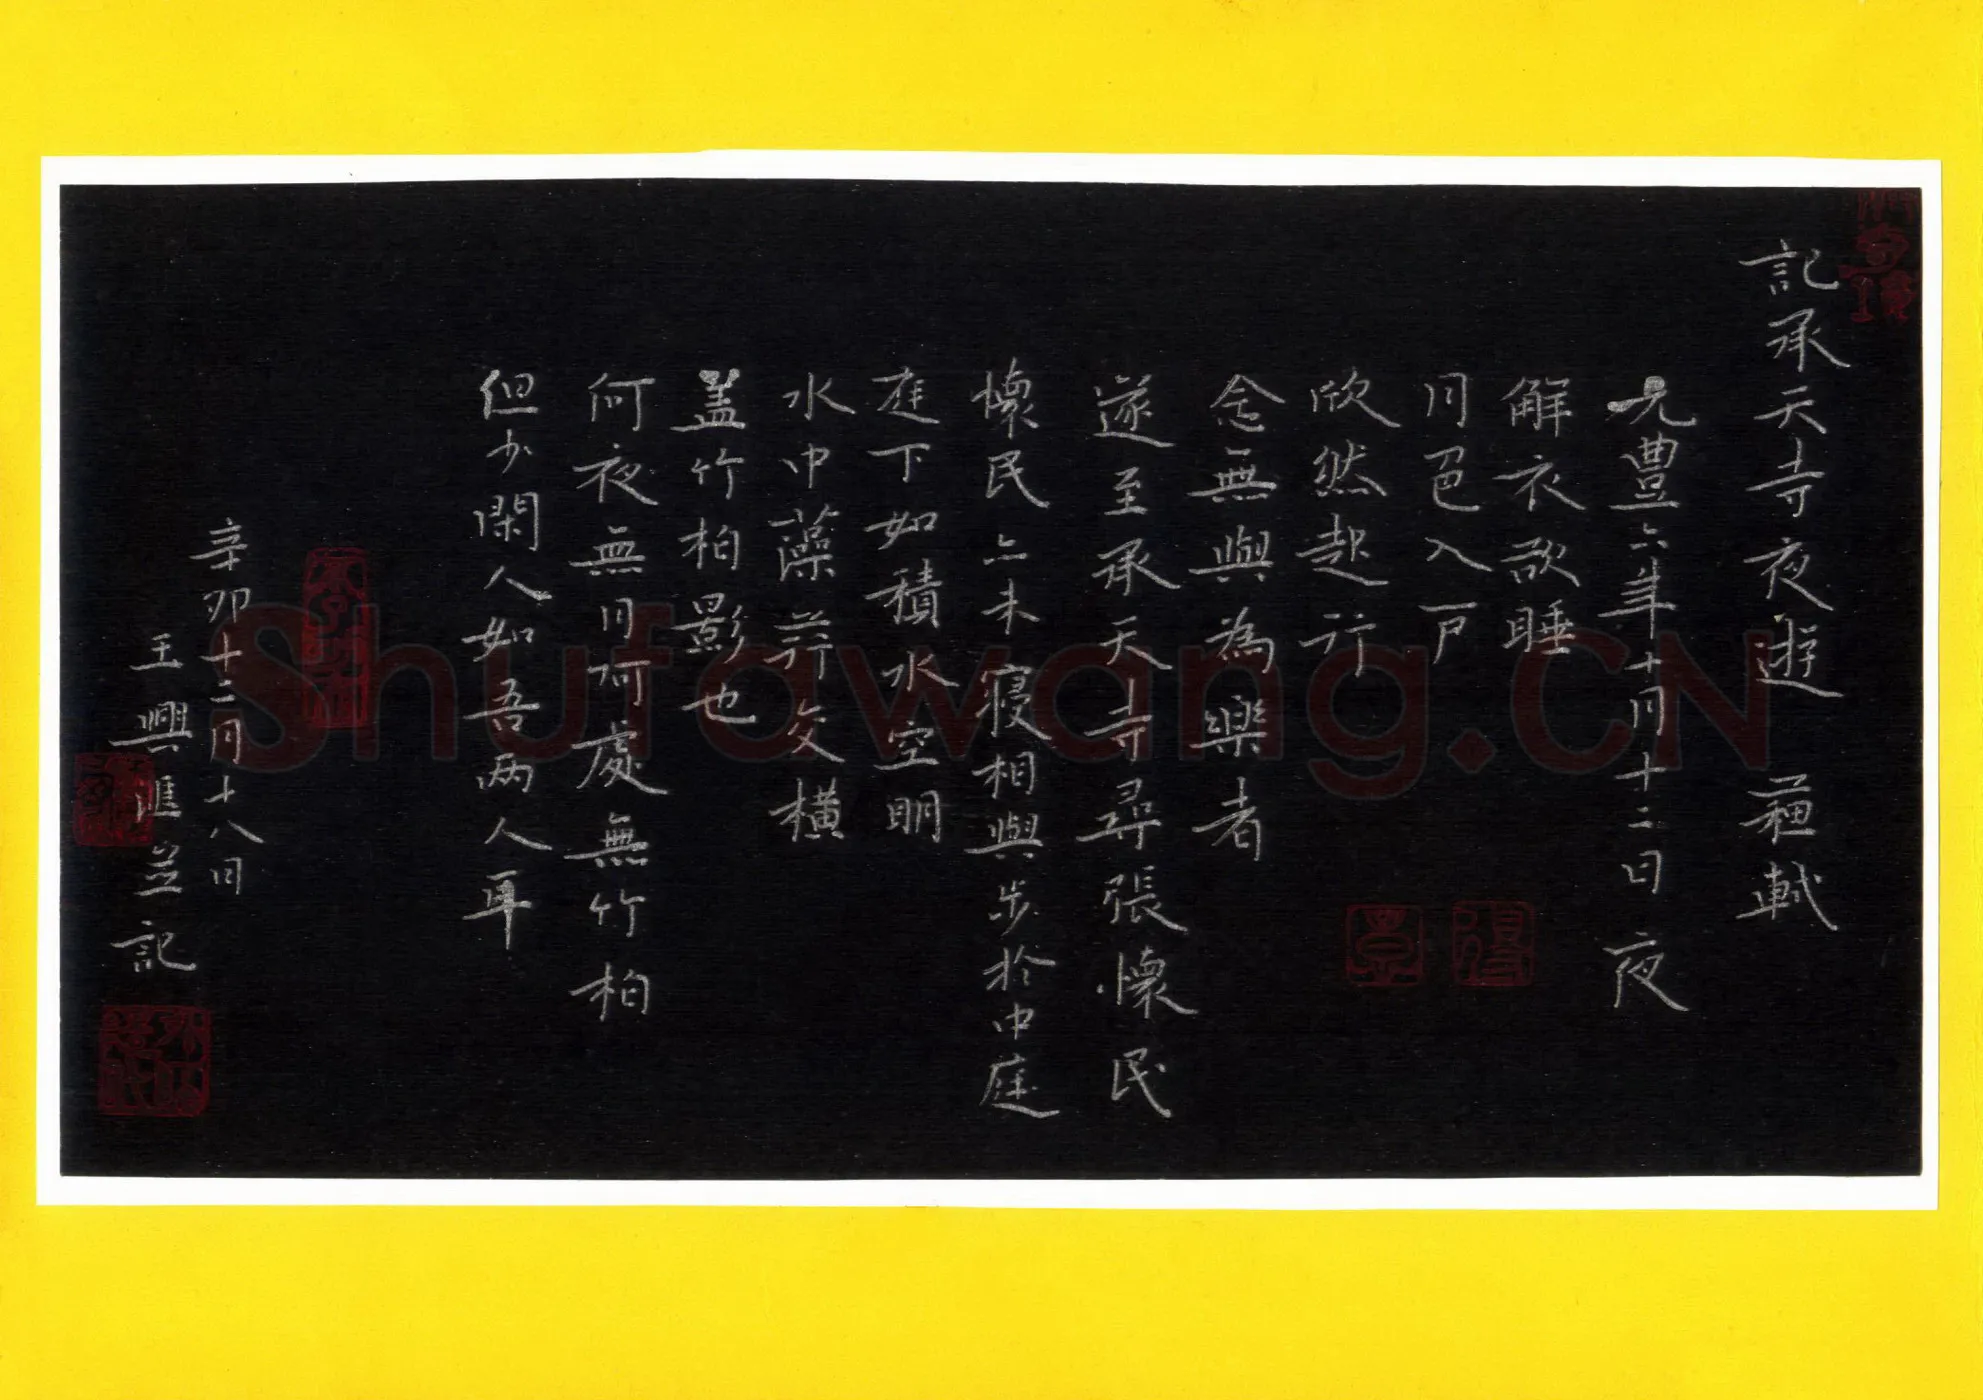 記承天寺夜遊 蘓軾
元豊六年十月十二日夜
解衣欲睡
月色入戸
欣然起行
念無與為樂者
遂至承天寺尋張懷民
懷民亦未寢相與步於中庭
庭下如積水空明
水中藻荇交橫
盖竹柏影也
何夜無月何處無竹柏
但少閑人如吾兩人耳
辛卯十二月十八日
王興匯並記
Shufawang.CN